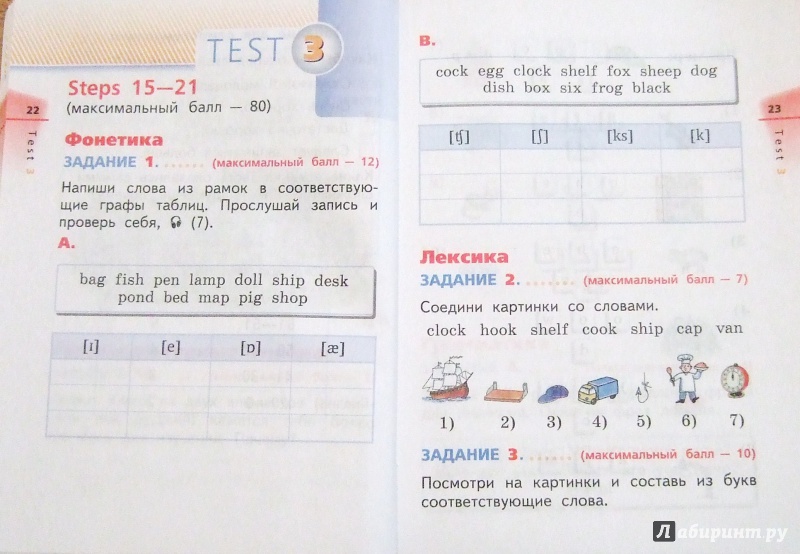 TEST 3
Steps 15—21
(максимальный балл — 80)
22
Test 3
Фонетика
ЗАДАНИЕ 1. ...... (максимальный балл — 12)
Напиши слова из рамок в соответствую-
щие графы таблиц. Прослушай запись и
проверь себя, (7).
A.
bag fish pen lamp doll ship desk
pond bed map pig shop
[ɪ] [e] [ɒ] [æ]
B.
cock egg clock shelf fox sheep dog
dish box six frog black
23
Test 3
[ʧ] [ʃ] [ks] [k]
Лексика
ЗАДАНИЕ 2. ....... (максимальный балл — 7)
Соедини картинки со словами.
clock hook shelf cook ship cap van
1) 2) 3) 4) 5) 6) 7)
ЗАДАНИЕ 3. ...... (максимальный балл — 10)
Посмотри на картинки и составь из букв
соответствующие слова.
Лабиринт.ру